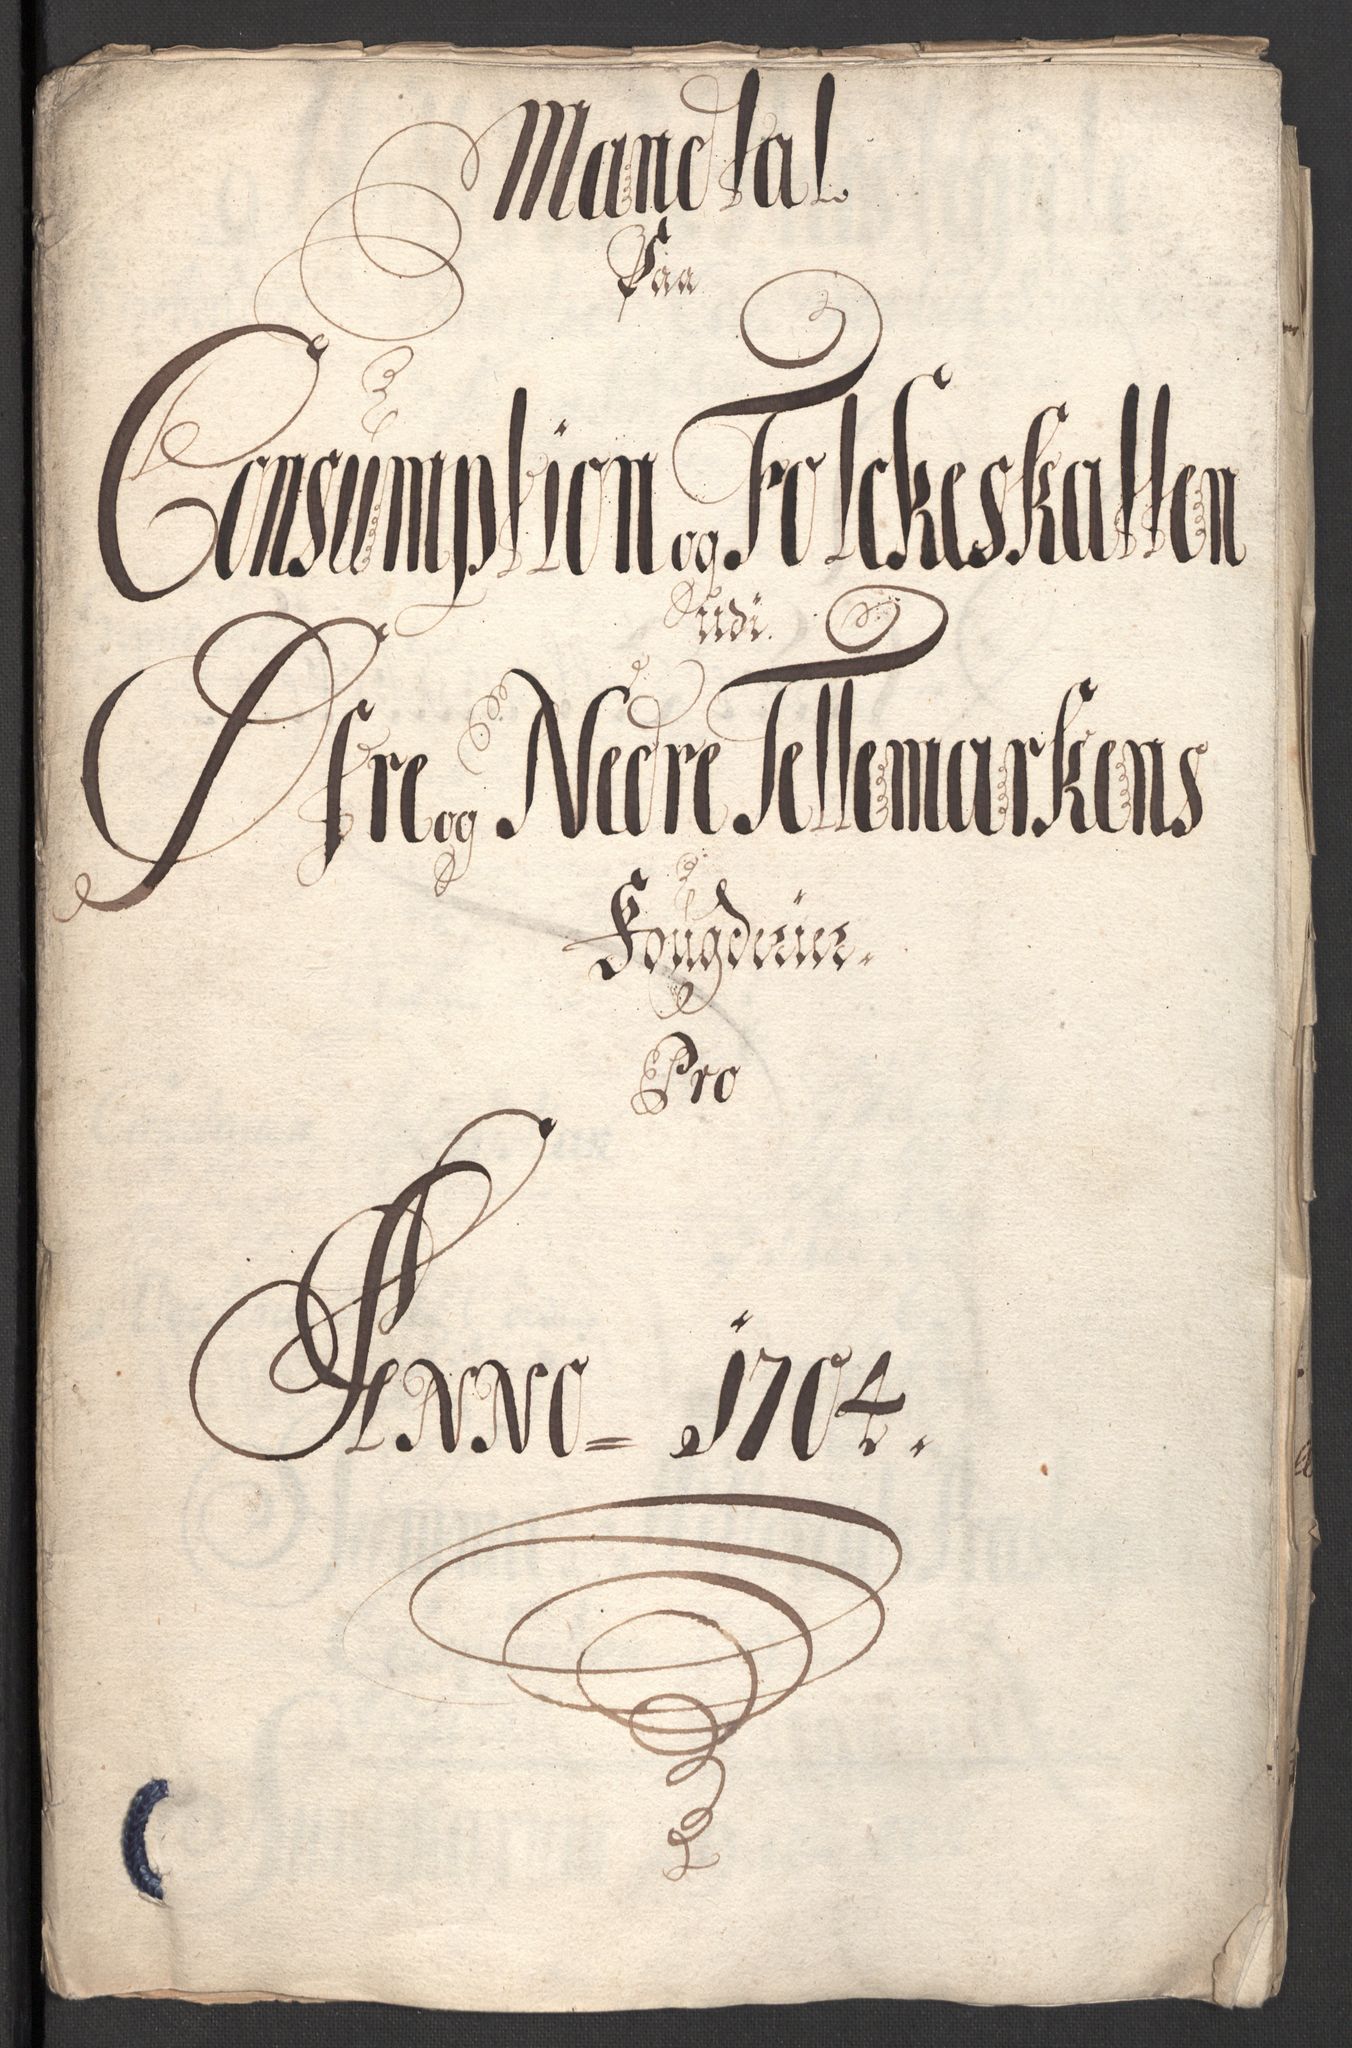 Mandtal
Paa
Consumption og Folckeskatten
udi
Øfre og Nedre Tellemarkens
Fougderier.
Pro
Anno = 1704.